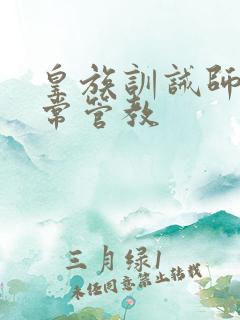 皇族訓誡師
常管教
三月绿1
未经同意禁止转载